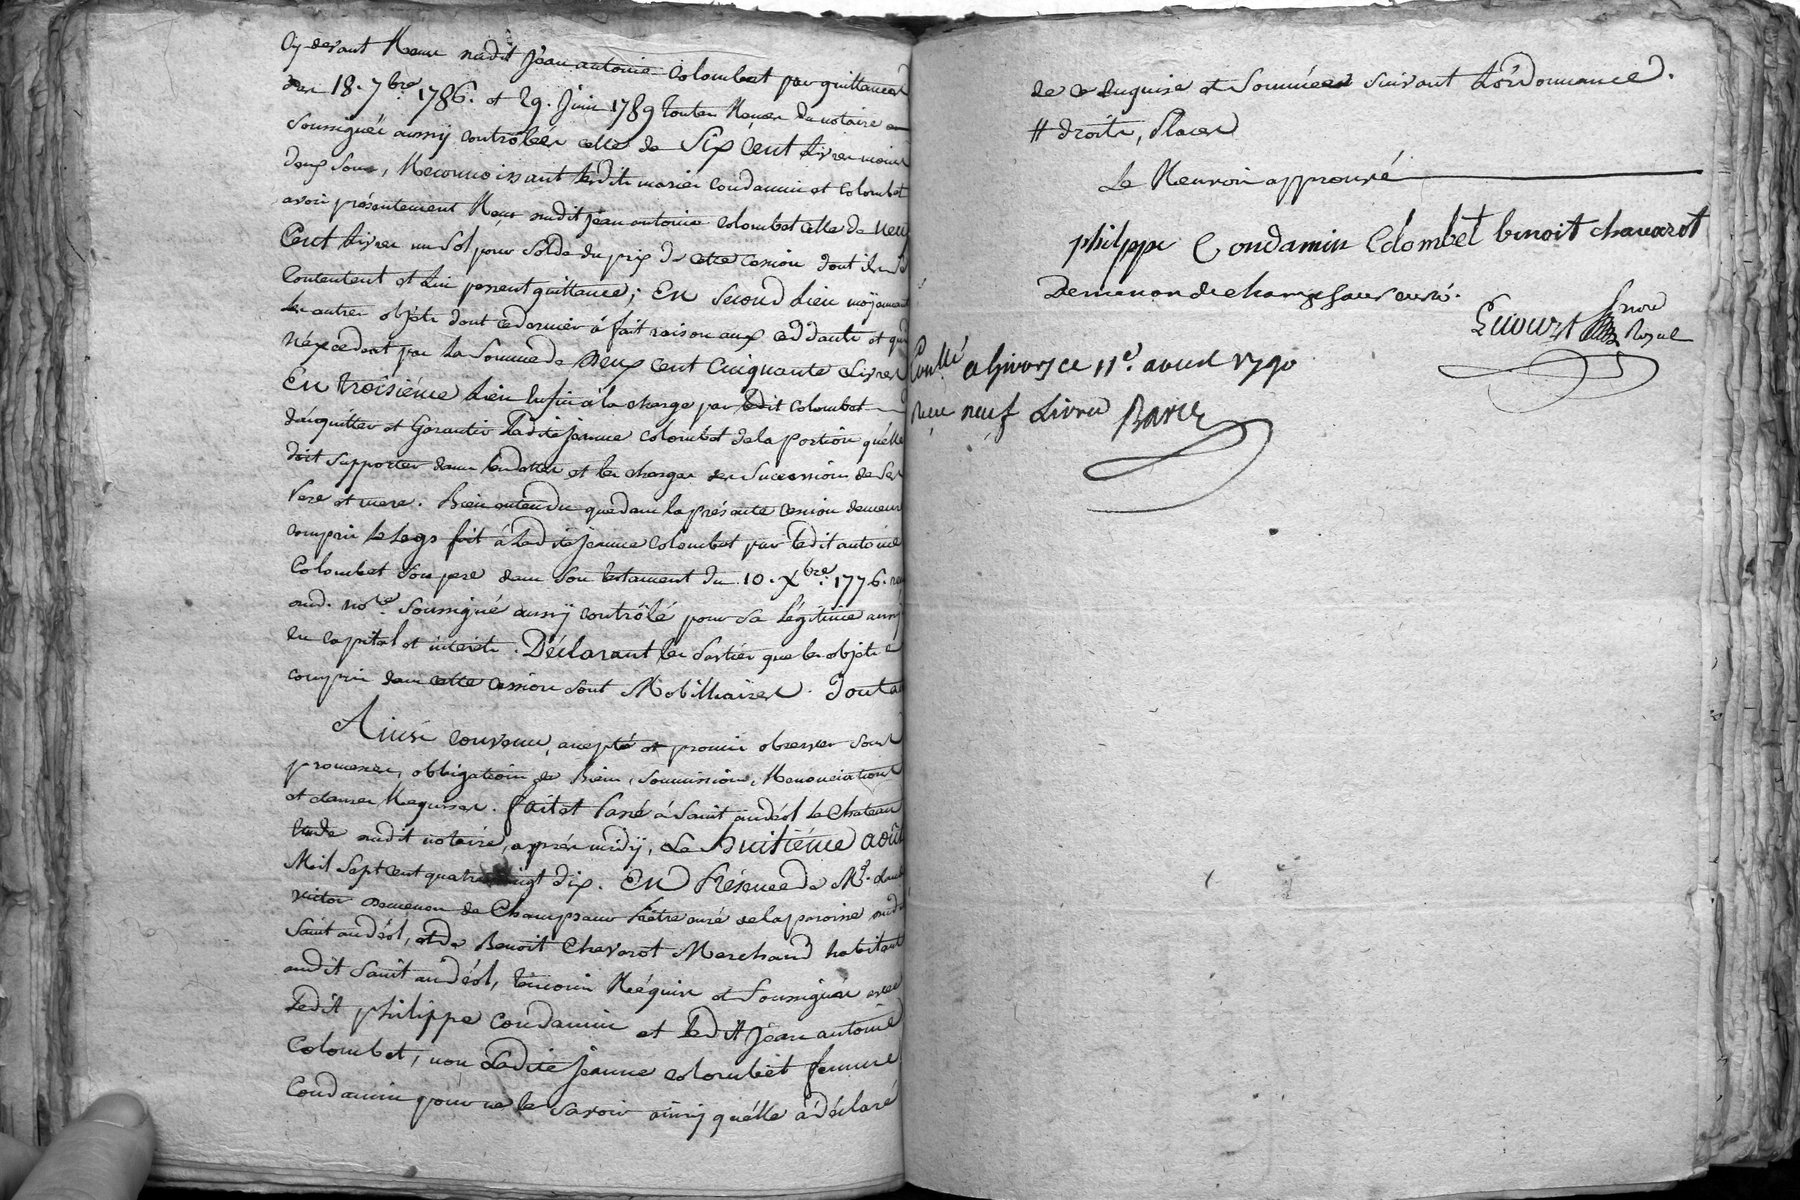 Cy-devant Reçue sudit Jean antoine Colombet par quittances
des 18. 7bre 1786. et 29. Juin 1789 toutes Reçues du notaire
soussignée aussy controlées celle de Six Cent Livres moins
deux sous, Reconnoissant lesdits mariés Condamin et Colombet
avoir présentement Reçu sudit jean antoine Colombet celle de neuf
Cent Livres un Sol pour Solde du prix de cette cession dont ils se
Contentent et L'en passent quittance; En Second Lieu moyennant
les autres objets dont ce dernier à fait raison aux cédants et qui
n'éxcedent pas la Somme de Deux Cent Cinquante Livres
En troisième Lieu Enfin à la charge par ledit Colombet
d'acquitter et Garantir Ladite jeanne Colombet de la portion qu'elle
doit supporter dans les dettes et les charges des Successions de Ses
Pere et mere. Bien entendu que dans la présente cession demeure
compris le legs fait à Ladite jeanne Colombet par ledit antoine
Colombet Son pere dans Son testament du 10. Xbre 1776. reçu
aud. nore Soussigné aussy controlé pour Sa Légitime aussy
en capital et interets. Déclarant les Parties que les objets
compris dans cette cession sont Mobilliaires. Tout
Ainsi convenu, accepté et promis observer sous
promesses, obbligations de Biens, soumissions, Renonciations
et clauses Requises. fait et Passé à Saint andéol le Chateau
Etude audit notaire, après midy, Le huitième août
Mil Sept cent quatre vingt dix. En Présence de Mre.
victor Demenon de Champsaur Prêtre curé de la paroisse sudit
Saint andéol, et de Benoit Chavarot Marchand habitant
audit Saint andéol, témoins Requis et Soussignés avec
Ledit philippe Condamin et ledit Jean antoine
Colombet, non Ladite jeanne Colombet femme
Condamin pour ne le Savoir ainsy qu'elle à déclaré
de ce Enquise et Sommée suivant L'ordonnance.
# droits, Places
Le Renvoi approuvé
philippe Condamin Colombet benoit chavarot
Demenon de champsaur curé.
nore
Royal
Conllé a Givors ce 11e. aoust 1790
Reçu neuf Livres